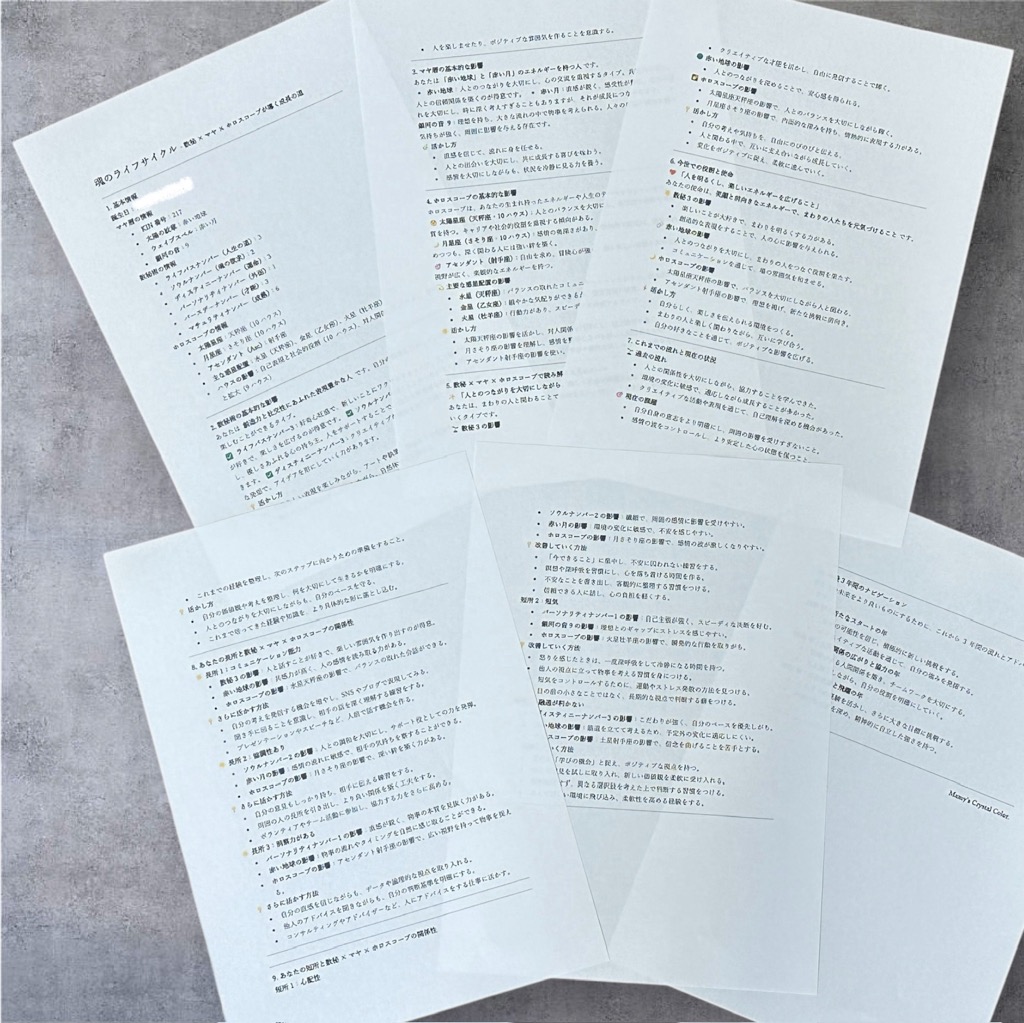 魂のライフサイクル:数秘 × マヤ × ホロスコープが導く成長の道
1. 基本情報
誕生日:
マヤ暦の情報
• KIN 番号:217
• 太陽の紋章:赤い地球
• ウェイブスペル:赤い月
• 銀河の音:9
数秘術の情報
• ライフパスナンバー(人生の道):3
• ソウルナンバー(魂の欲求):2
• ディスティニーナンバー(運命):3
• パーソナリティナンバー(外面):1
• バースデーナンバー(才能):3
• マチュリティナンバー(成熟):
ホロスコープの情報
• 太陽星座:天秤座(10 ハウス)
• 月星座:さそり座(10 ハウス)
• アセンダント(Asc):射手座
• 主な惑星配置:水星(天秤座)、金星(乙女座)、火星(牡羊座)
• ハウスの影響:自己表現と社会的役割(10 ハウス)、対人関
と拡大(9 ハウス)
2. 数秘術の基本的な影響
あなたは 創造力と社交性にあふれた表現豊かな人 です。自分
楽しむことができるタイプ。
✅ ライフパスナンバー3:好奇心旺盛で、新しいことにワク
が好きで、楽しさを広げるのが得意です。 ✅ ソウルナンバー
し、優しさあふれる心の持ち主。人をサポートすることで
きます。 ✅ ディスティニーナンバー3:クリエイティブ
な発想で、アイデアを形にしていく力があります。
💡 活かし方
• 人を楽しませたり、ポジティブな雰囲気を作ることを意識する。
3. マヤ暦の基本的な影響
あなたは 「赤い地球」と「赤い月」のエネルギーを持つ人 です。
• 赤い地球:人とのつながりを大切にし、心の交流を重視するタイプ。共
人との信頼関係を築くのが得意です。 • 赤い月:直感が鋭く、感受性が
れを大切にし、時に深く考えすぎることもありますが、それが成長につな
銀河の音 9:理想を持ち、大きな流れの中で物事を考えられる。人々の
気持ちが強く、周囲に影響を与える存在です。
活かし方
• 直感を信じて、流れに身を任せる。
• 人との出会いを大切にし、共に成長する喜びを味わう。
• 感情を大切にしながらも、状況を冷静に見る力を養う。
4. ホロスコープの基本的な影響
ホロスコープは、あなたの生まれ持ったエネルギーや人生のテ
太陽星座(天秤座・10 ハウス):人とのバランスを大切
質を持つ。キャリアや社会的役割を重視する傾向がある。
月星座(さそり座・10 ハウス):感情の奥深さがあり、
めつつも、深く関わる人には強い絆を築く。
アセンダント(射手座):自由を求め、冒険心が強
視野が広く、楽観的なエネルギーを持つ。
主要な惑星配置の影響
• 水星(天秤座):バランスの取れたコミュニ
• 金星(乙女座):細やかな気配りができる
• 火星(牡羊座):行動力があり、スピーデ
活かし方
• 太陽天秤座の影響を活かし、対人関係
• 月さそり座の影響を理解し、感情を
• アセンダント射手座の影響を使い、
5. 数秘 × マヤ × ホロスコープで読み解
「人とのつながりを大切にしながら
あなたは、まわりの人と関わることで
いくタイプです。
数秘 3 の影響
• クリエイティブな才能を活かし、自由に発信することで輝く。
赤い地球の影響
• 人とのつながりを深めることで、安心感を得られる。
ホロスコープの影響
• 太陽星座天秤座の影響で、人とのバランスを大切にしながら輝く。
• 月星座さそり座の影響で、内面的な深みを持ち、情熱的に表現する力がある。
💡 活かし方
• 自分の考えや気持ちを、自由にのびのびと伝える。
• 人と関わる中で、互いに支え合いながら成長していく。
• 変化をポジティブに捉え、柔軟に進んでいく。
6. 今世での役割と使命
「人を明るくし、楽しいエネルギーを広げること」
あなたの使命は、笑顔と前向きなエネルギーで、まわりの人たちを元気づけること です。
数秘 3 の影響
• 楽しいことが大好きで、まわりを明るくする力がある。
• 創造的な表現をすることで、人の心に影響を与えられる。
赤い地球の影響
• 人とのつながりを大切にし、まわりの人をつなぐ役割を果たす。
• コミュニケーションを通じて、場の雰囲気を和ませる。
ホロスコープの影響
• 太陽星座天秤座の影響で、バランスを大切にしながら人と関わる。
• アセンダント射手座の影響で、理想を掲げ、新たな挑戦に前向き。
活かし方
• 自分らしく、楽しさを伝えられる環境をつくる。
• まわりの人と楽しく関わりながら、互いに学び合う。
• 自分の好きなことを通じて、ポジティブな影響を広げる。
7. これまでの流れと現在の状況
過去の流れ
• 人との関係性を大切にしながら、協力することを学んできた。
• 環境の変化に敏感で、適応しながら成長することが多かった。
• クリエイティブな活動や表現を通じて、自己理解を深める機会があった。
現在の課題
• 自分自身の意志をより明確にし、周囲の影響を受けすぎないこと。
• 感情の波をコントロールし、より安定した心の状態を保つこと。
• これまでの経験を整理し、次のステップに向かうための準備をすること。
💡 活かし方
• 自分の価値観や考えを整理し、何を大切にして生きるかを明確にする。
• 人とのつながりを大切にしながらも、自分のペースを守る。
• これまで培ってきた経験や知識を、より具体的な形に落とし込む。
8. あなたの長所と数秘 × マヤ × ホロスコープの関係性
長所 1:コミュニケーション能力
• 数秘 3 の影響:人と話すことが好きで、楽しい雰囲気を作り出すのが得意。
• 赤い地球の影響:共感力が高く、人の感情を読み取る力がある。
• ホロスコープの影響:水星天秤座の影響で、バランスの取れた会話ができる。
💡 さらに活かす方法
• 自分の考えを発信する機会を増やし、SNS やブログで表現してみる。
• 聞き手に回ることを意識し、相手の話を深く理解する練習をする。
• プレゼンテーションやスピーチなど、人前で話す機会を作る。
長所 2:協調性あり
• ソウルナンバー2 の影響:人との調和を大切にし、サポート役としての力を発揮。
• 赤い月の影響:感情の流れに敏感で、相手の気持ちを察することができる。
• ホロスコープの影響:月さそり座の影響で、深い絆を築く力がある。
💡 さらに活かす方法
• 自分の意見もしっかり持ち、相手に伝える練習をする。
• 周囲の人の長所を引き出し、より良い関係を築く工夫をする。
• ボランティアやチーム活動に参加し、協力する力をさらに高める。
長所 3:洞察力がある
• パーソナリティナンバー1 の影響:直感が鋭く、物事の本質を見抜く力がある。
• 赤い地球の影響:物事の流れやタイミングを自然に感じ取ることができる。
• ホロスコープの影響:アセンダント射手座の影響で、広い視野を持って物事を捉え
る。
💡 さらに活かす方法
• 自分の直感を信じながらも、データや論理的な視点を取り入れる。
• 他人のアドバイスを聞きながらも、自分の判断基準を明確にする。
• コンサルティングやアドバイザーなど、人にアドバイスをする仕事に活かす。
9. あなたの短所と数秘 × マヤ × ホロスコープの関係性
短所 1:心配性
• ソウルナンバー2 の影響:繊細で、周囲の感情に影響を受けやすい。
• 赤い月の影響:環境の変化に敏感で、不安を感じやすい。
• ホロスコープの影響:月さそり座の影響で、感情の波が激しくなりやすい。
💡 改善していく方法
• 「今できること」に集中し、不安に囚われない練習をする。
• 瞑想や深呼吸を習慣にし、心を落ち着ける時間を作る。
• 不安なことを書き出し、客観的に整理する習慣をつける。
• 信頼できる人に話し、心の負担を軽くする。
短所 2:短気
• パーソナリティナンバー1 の影響:自己主張が強く、スピーディな決断を好む。
• 銀河の音 9 の影響:理想とのギャップにストレスを感じやすい。
• ホロスコープの影響:火星牡羊座の影響で、瞬発的な行動を取りがち。
💡 改善していく方法
• 怒りを感じたときは、一度深呼吸をして冷静になる時間を持つ。
• 他人の視点に立って物事を考える習慣を身につける。
• 短気をコントロールするために、運動やストレス発散の方法を見つける。
目の前の小さなことではなく、長期的な視点で判断する癖をつける。
融通が利かない
ディスティニーナンバー3 の影響:こだわりが強く、自分のペースを優先しがち。
地球の影響:筋道を立てて考えるため、予定外の変化に適応しにくい。
スコープの影響:土星射手座の影響で、信念を曲げることを苦手とする。
く方法
「学びの機会」と捉え、ポジティブな視点を持つ。
見を試しに取り入れ、新しい価値観を柔軟に受け入れる。
ず、異なる選択肢を考えた上で判断する習慣をつける。
い環境に飛び込み、柔軟性を高める経験をする。
3 年間のナビゲーション
未来をより良いものにするために、これから 3 年間の流れとアド
新たなスタートの年
の可能性を信じ、積極的に新しい挑戦をする。
イティブな活動を通じて、自分の強みを発揮する。
関係の広がりと協力の年
る人間関係を築き、チームワークを大切にする。
しながら、自分の役割を明確にしていく。
と飛躍の年
験を活かし、さらに大きな目標に挑戦する。
を深め、精神的に自立した強さを持つ。
Mamy's Crystal Color.